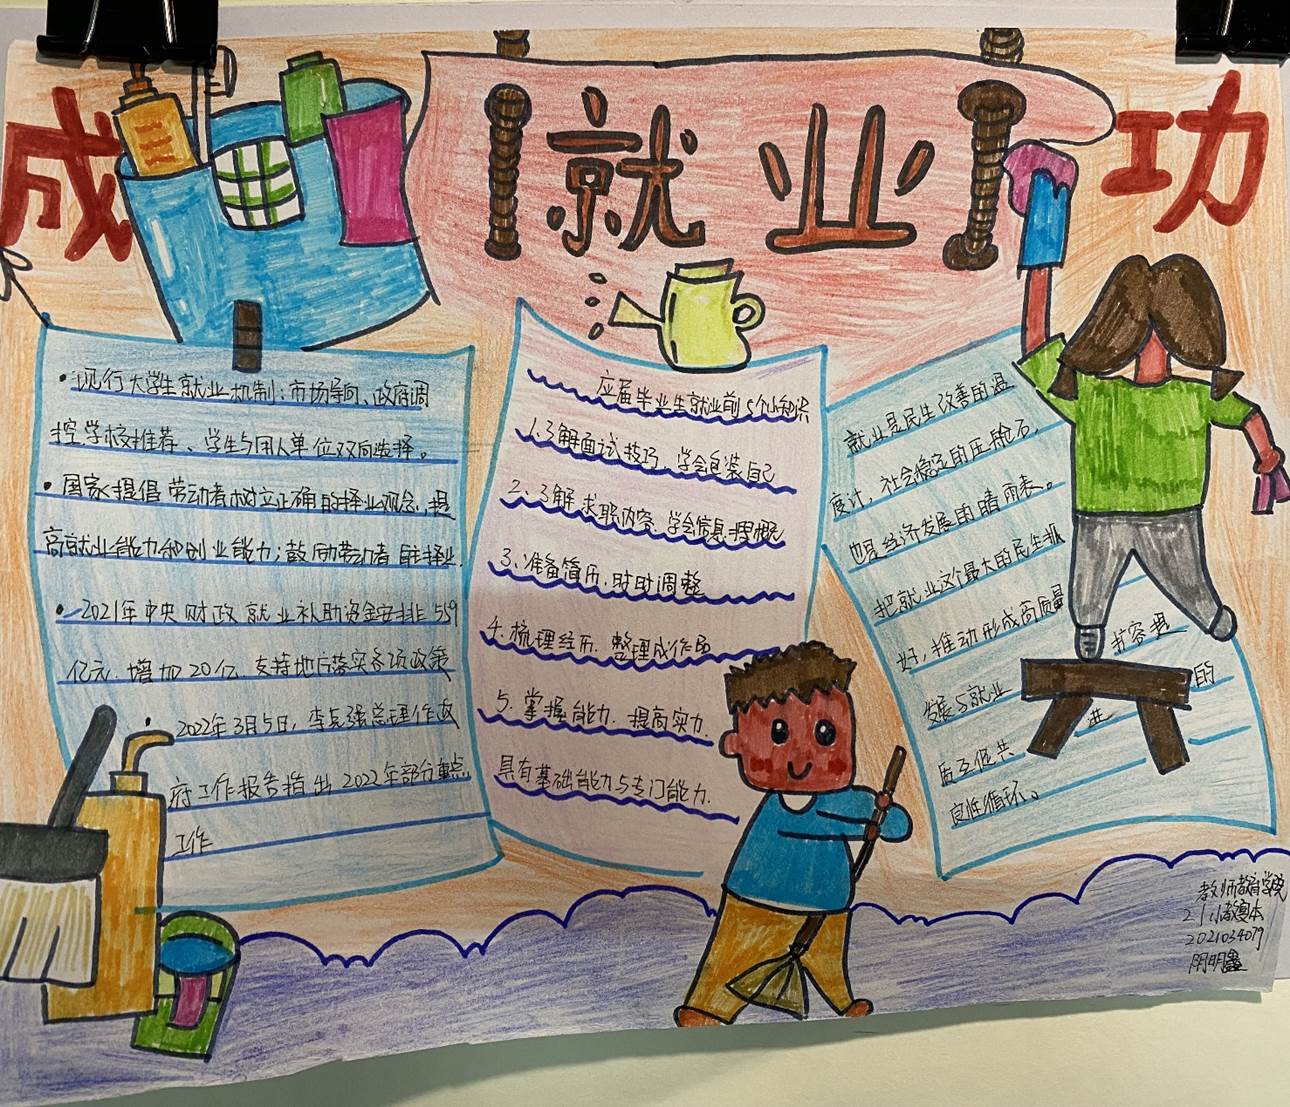 成就业功
·现行大学生就业机制:市场导向、政府调
控、学校推荐、学生与用人单位双向选择。
·国家提倡劳动者树立正确的择业观念,提
高就业能力和创业能力;鼓励劳动者自主择业.
·2021年中央财政就业补助资金安排559
亿元.增加20亿.支持地方落实各项政策
·2022年3月5日,李克强总理作政
府工作报告指出2022年部分重点
工作
应届毕业生就业前5个小知识
1.了解面试技巧、学会包装自己
2、了解求职内容、学会信息
3、准备简历.时时调整
4.梳理经历.整理成作品
5.掌握能力.提高实力.
具有基础能力与专门能力.
就业是民生改善的温
度计,社会稳定的压舱石,
也是经济发展的晴雨表。
把就业这个最大的民生抓
好,推动形成高质量
发展与就业 扩容提
质互促共 进 的
良性循环。
教师教育学院
21小教复本
2021034079
阴明鑫